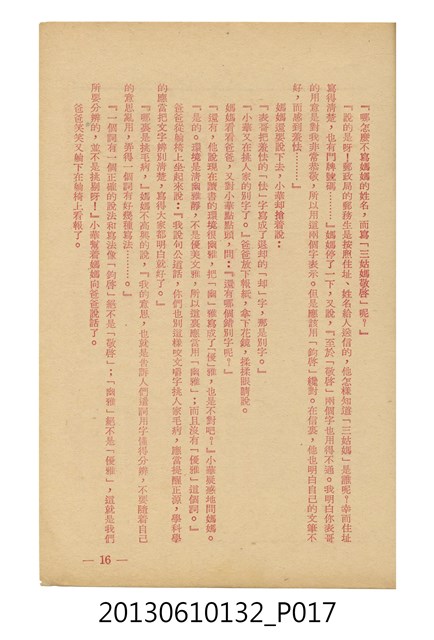 『哪怎麼不寫媽媽的姓名，而寫「三姑媽敬啓」呢？』
『說的是呀！郵政局的郵務生是按照住址、姓名給人送信的，他怎樣知道「三姑媽」是誰呢？幸而住址
寫得清楚，也有門牌號碼……』媽媽停了一下，又說，『至於「敬啓」兩個字也用得不通。我明白你表哥
的用意是對我非常恭敬，所以用這兩個字表示。但是應該用「鈞啓」纔對。在信裏，他也明白自己的文筆不
好，而感到羞怯……。』
媽媽還要說下去，小華却搶着說：
『表哥把羞怯的「怯」字寫成了退却的「却」字，那是別字。』
『小華又在挑人家的別字了。』爸爸放下報紙，拿下花鏡，揉揉眼睛說。
媽媽看看爸爸，又對小華點點頭，問：『還有哪個錯別字呢？』
『還有，他說現在讀書的環境很幽雅，把「幽」雅寫成了「優」雅，也是不對吧？』小華疑惑地問媽媽。
『是的。環境是清幽雅靜，不是優美文雅，所以這裏應當用「幽雅」；而且沒有「優雅」這個詞。』
爸爸從躺椅上坐起來說：『我說句公道話，你們也別這樣咬文嚼字挑人家毛病，應當提醒正源，學科學
的應當把文字辨別清楚，寫得大家都明白就好了。』
『哪裏是挑毛病，』媽媽不高興的說，『我的意思，也就是告訴人們遣詞用字值得分辨，不要隨着自己
的意思亂用，弄得一個詞有好幾種寫法……。』
『一個詞有一個正確的說法和寫法像「鈞啓」絕不是「敬啓」；「幽雅」絕不是「優雅」，這就是我們
所要分辨的，並不是挑剔呀！』小華幫着媽媽向爸爸說話了。
爸爸笑笑又躺下在躺椅上看報了。
— 16 —
20130610132_P017